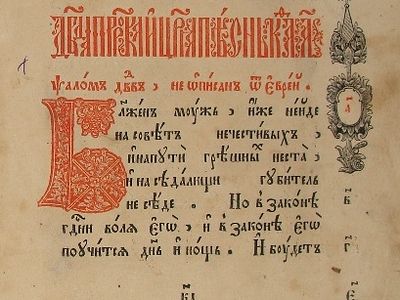 Дв҃да прⷪ҇рка и цр҃ѧ пѣснь
Ѱало́мъ дв҃дв · не ѡ҆пи́санъ ѿ є҆врє́й ·
Бл҃же́нъ моу́жъ , и҆́же неи҆́де
на совѣ́тъ нечести́выхъ ,
и҆ напути̑ грѣ́шныⷯ неста̀ ,
и҆ на сѣда́лищи губи́тель
не сѣ́де . Но в̾ зако́нѣ
гдⷭ҇ни во́лѧ є҆гѡ̀ , и҆ в̾ зако́нѣ є҆гѡ̀
поучи́тсѧ дн҃ь и҆ но́щь . И҆ боу́детъ
а҃
в҃
г҃
є҃
к҃і